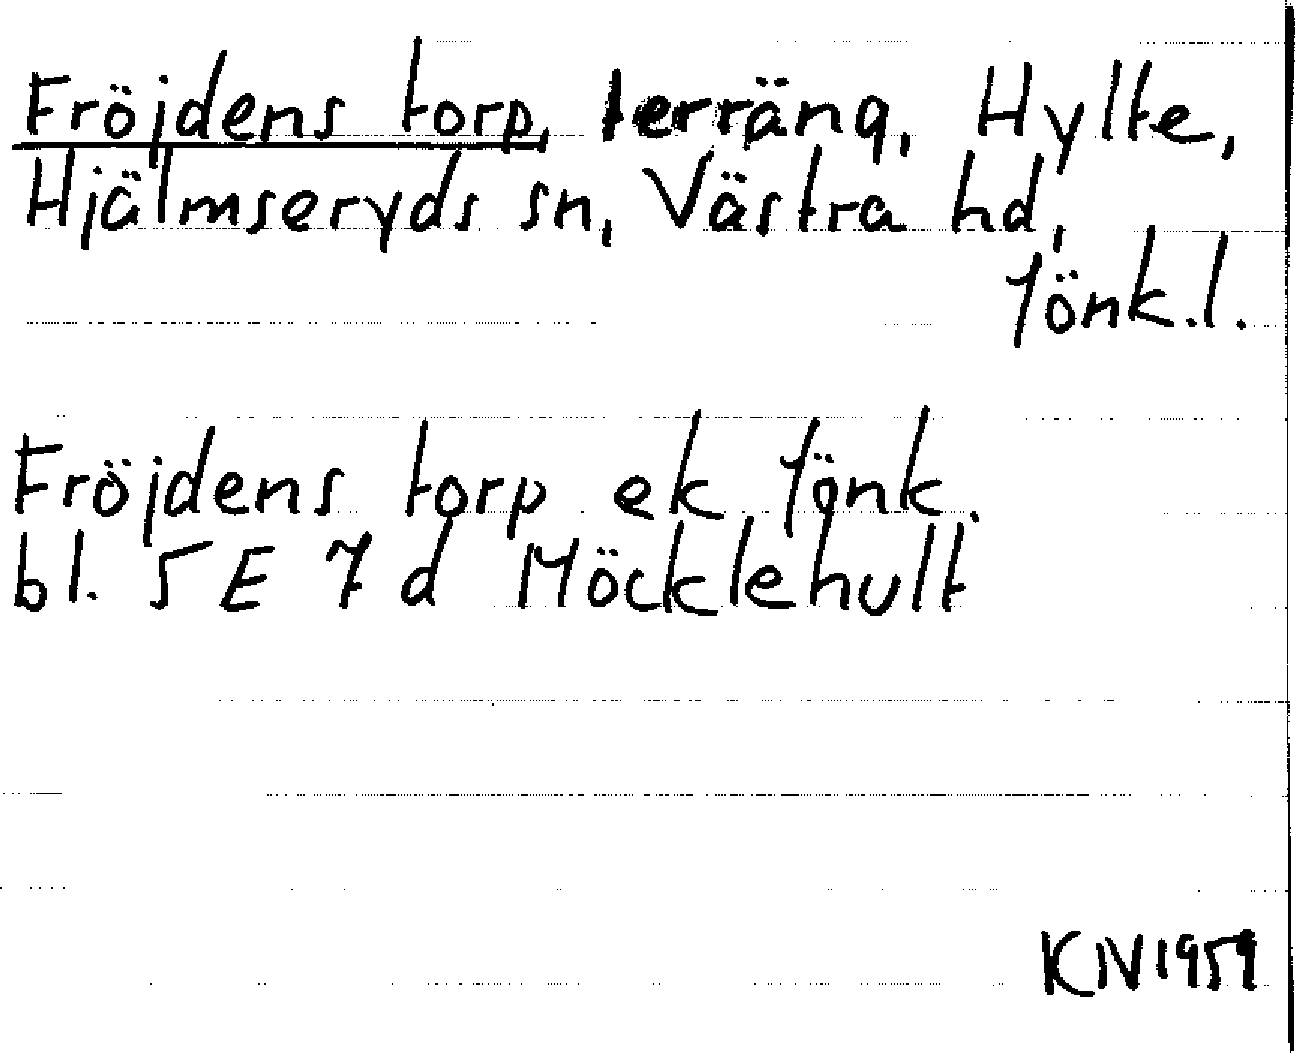 Fröjdens torp, terräng, Hylte,
Hjälmseryds sn, Västra hd,
Jönk.l.
Fröjdens torp ek Jönk.
bl. 5 E 7 d Möcklehult
KIV 1959